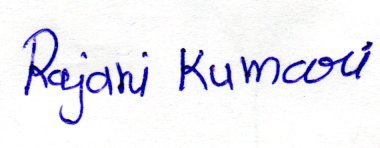 Rajani Kumari